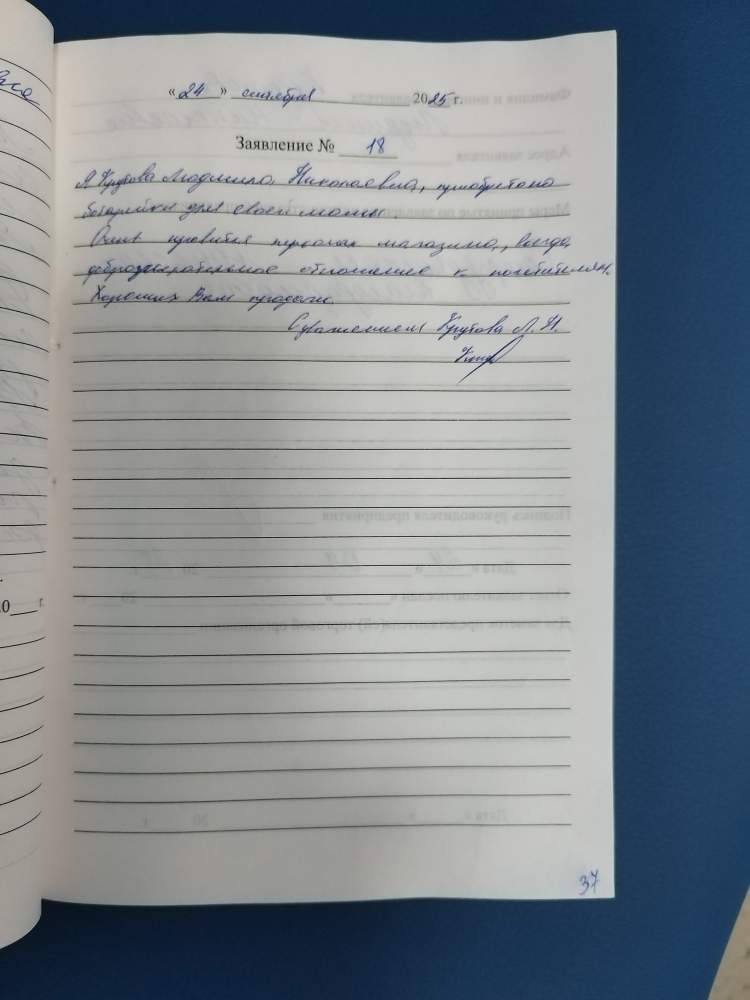 « 24 » сентября 2025 г.
Заявление № 18
Я Крутова Людмила Николаевна, приобретала
батарейки для своей мамы.
Очень нравится персонал магазина, всегда
доброжелательное отношение к посетителям.
Хороших Вам продаж.
С уважением Крутова Л. Н.
20 г.
37